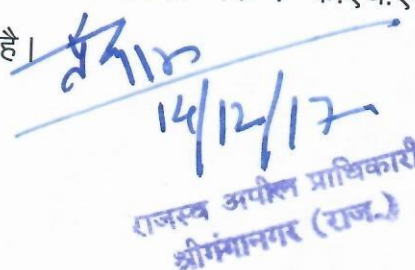 है।
14/12/17
राजस्व अपील प्राधिकारी
श्रीगंगानगर (राज.)